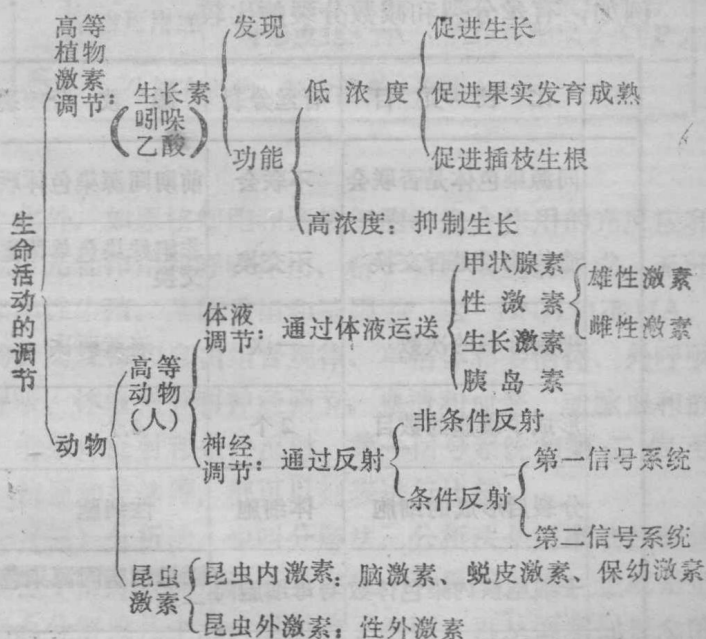 生命活动的调节
高等
植物
激素
调节:
生长素
(吲哚
乙酸)
发现
功能
低浓度
促进生长
促进果实发育成熟
促进插枝生根
高浓度:抑制生长
动物
高等
动物
(人)
体液
调节:通过体液运送
甲状腺素
性激素
雄性激素
雌性激素
生长激素
胰岛素
神经
调节:通过反射
非条件反射
条件反射
第一信号系统
第二信号系统
昆虫
激素
昆虫内激素:脑激素、蜕皮激素、保幼激素
昆虫外激素:性外激素